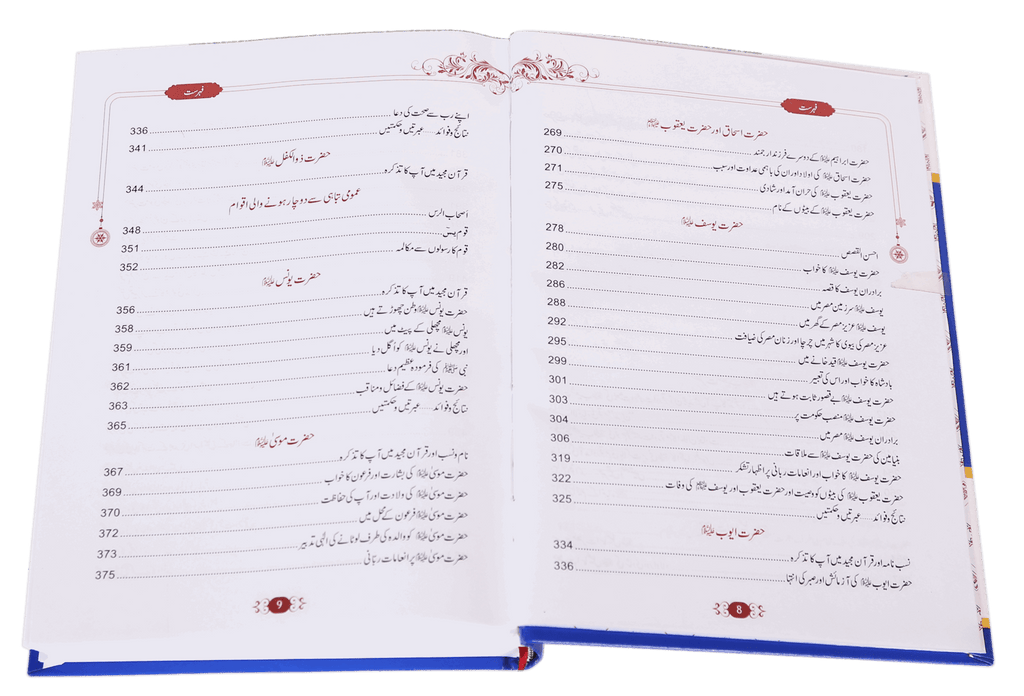 فہرست
حضرت اسحاق اور حضرت یعقوب علیہما السلام
حضرت ابراہیم علیہ السلام کے دوسرے فرزند ارجمند 269
حضرت اسحاق علیہ السلام کی اولاد اور ان کی باہمی عداوت اور سبب 270
حضرت یعقوب علیہ السلام کی حران آمد اور شادی 271
حضرت یعقوب علیہ السلام کے بیٹوں کے نام 275
حضرت یوسف علیہ السلام
احسن القصص 278
حضرت یوسف علیہ السلام کا خواب 280
برادران یوسف کا قصہ 282
یوسف علیہ السلام سرزمین مصر میں 286
یوسف علیہ السلام عزیز مصر کے گھر میں 288
عزیز مصر کی بیوی کا شہر میں چرچا اور زنان مصر کی ضیافت 292
حضرت یوسف علیہ السلام قید خانے میں 295
بادشاہ کا خواب اور اس کی تعبیر 299
حضرت یوسف علیہ السلام بے قصور ثابت ہوتے ہیں 301
حضرت یوسف علیہ السلام منصب حکومت پر 303
برادران یوسف علیہ السلام مصر میں 304
بنیامین کی حضرت یوسف علیہ السلام سے ملاقات 306
حضرت یوسف علیہ السلام کا خواب اور انعامات ربانی پر اظہار تشکر 319
حضرت یعقوب علیہ السلام کی بیٹوں کو وصیت اور حضرت یعقوب اور یوسف علیہما السلام کی وفات 322
نتائج و فوائد ..... عبرتیں و حکمتیں 325
حضرت ایوب علیہ السلام
نسب نامہ اور قرآن مجید میں آپ کا تذکرہ 334
حضرت ایوب علیہ السلام کی آزمائش اور صبر کی انتہا 336
8
فہرست
اپنے رب سے صحت کی دعا 336
نتائج و فوائد ..... عبرتیں و حکمتیں 341
حضرت ذوالکفل علیہ السلام
قرآن مجید میں آپ کا تذکرہ 344
عمومی تباہی سے دوچار ہونے والی اقوام
اصحاب الرس 348
قوم یٰس 351
قوم کا رسولوں سے مکالمہ 352
حضرت یونس علیہ السلام
قرآن مجید میں آپ کا تذکرہ 356
حضرت یونس علیہ السلام وطن چھوڑتے ہیں 358
یونس علیہ السلام مچھلی کے پیٹ میں 359
اور مچھلی نے یونس علیہ السلام کو اگل دیا 361
نبی ﷺ کی فرمودہ عظیم دعا 362
حضرت یونس علیہ السلام کے فضائل و مناقب 363
نتائج و فوائد ..... عبرتیں و حکمتیں 365
حضرت موسیٰ علیہ السلام
نام و نسب اور قرآن مجید میں آپ کا تذکرہ 367
حضرت موسیٰ علیہ السلام کی بشارت اور فرعون کا خواب 369
حضرت موسیٰ علیہ السلام کی ولادت اور آپ کی حفاظت 370
حضرت موسیٰ علیہ السلام فرعون کے محل میں 372
حضرت موسیٰ علیہ السلام کو والدہ کی طرف لوٹانے کی الٰہی تدبیر 373
حضرت موسیٰ علیہ السلام پر انعامات ربانی 375
9